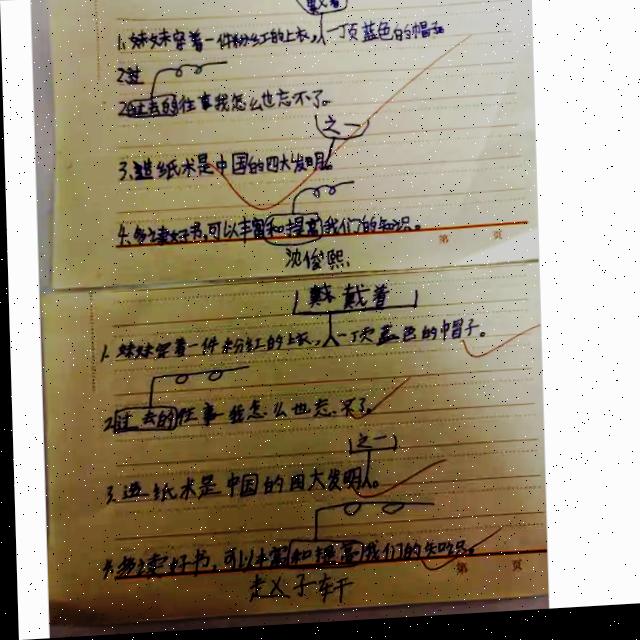 戴着
1.妹妹穿着一件粉红的上衣,一顶蓝色的帽子
2过
2过去的往事我怎么也忘不了。
之一
3.造纸术是中国的四大发明。
4.多读好书,可以丰富和提高我们的知识。
第 页
沈俊熙
戴着
1.妹妹穿着一件粉红的上衣,一顶蓝色的帽子。
2过去的往事我怎么也忘不了。
之一
3.造纸术是中国的四大发明。
4.多读好书,可以丰富和提高我们的知识。
第 页
子轩